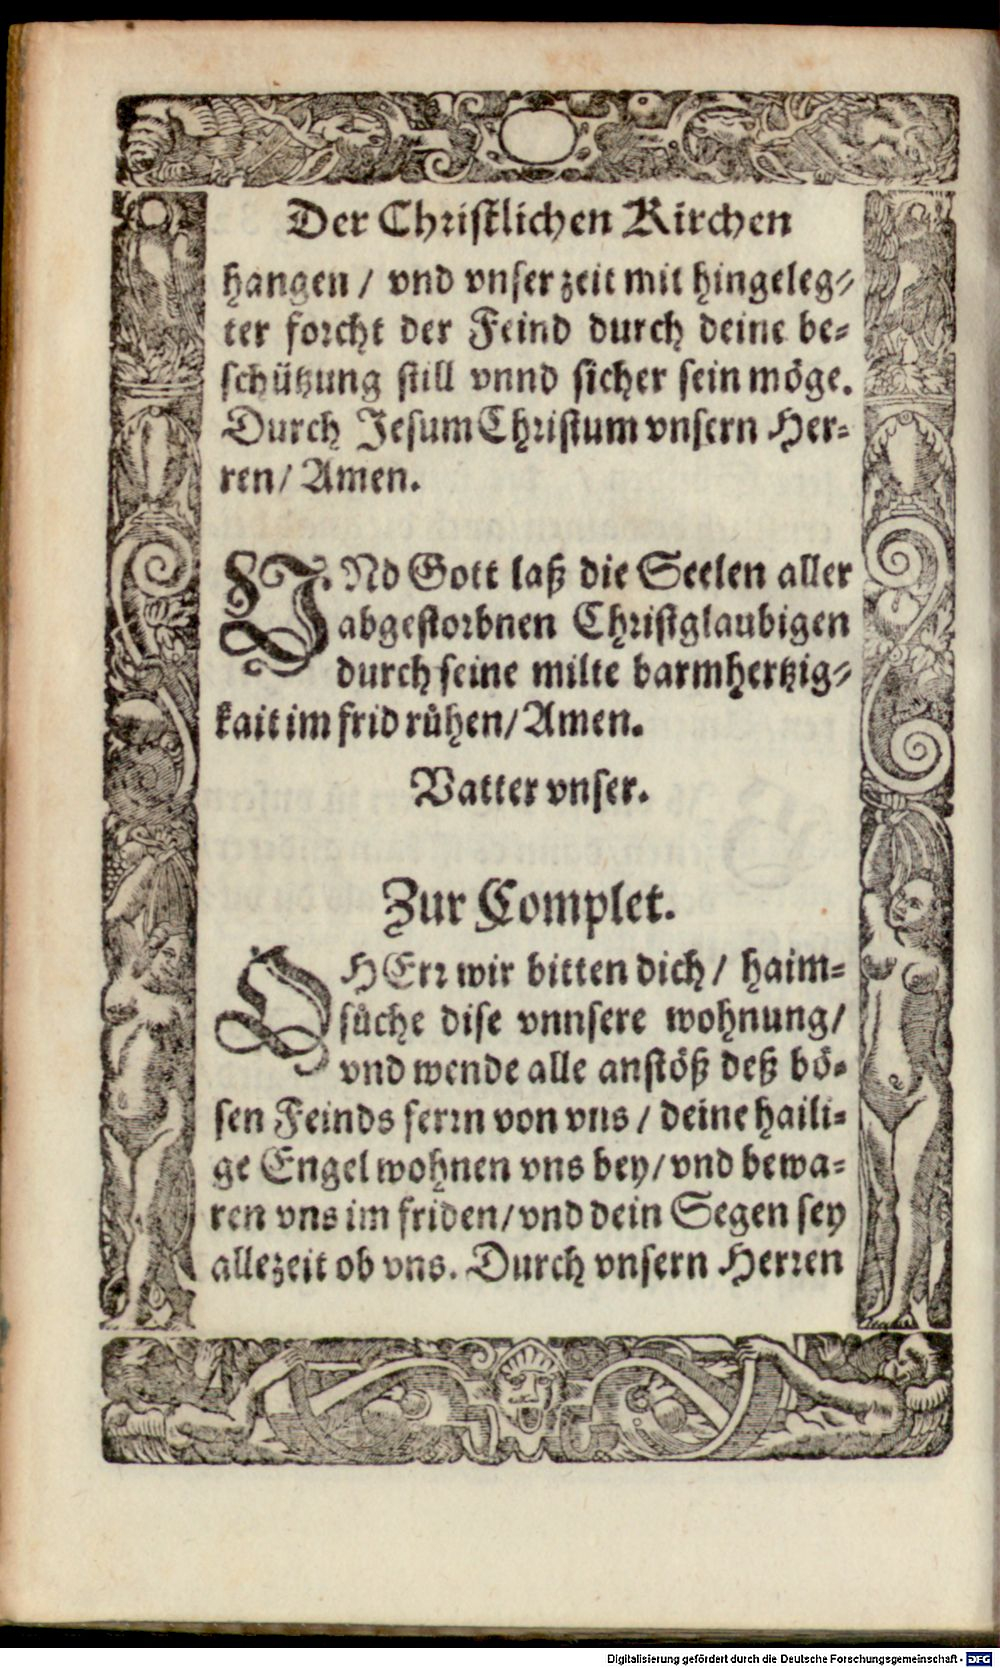 Der Christlichen Kirchen
hangen / vnd vnser zeit mit hingeleg⸗
ter forcht der Feind durch deine be⸗
schützung still vnnd sicher sein möge.
Durch Jesum Christum vnsern Her⸗
ren / Amen.
VNd Gott laß die Seelen aller
abgestorbnen Christglaubigen
durch seine milte barmhertzig⸗
kait im frid růhen / Amen.
Vatter vnser.
Zur Complet.
O HErr wir bitten dich / haim⸗
sůche dise vnnsere wohnung /
vnd wende alle anstöß deß bö⸗
sen Feinds ferrn von vns / deine haili⸗
ge Engel wohnen vns bey / vnd bewa⸗
ren vns im friden / vnd dein Segen sey
allezeit ob vns. Durch vnsern Herren
Digitalisierung gefördert durch die Deutsche Forschungsgemeinschaft - DFG